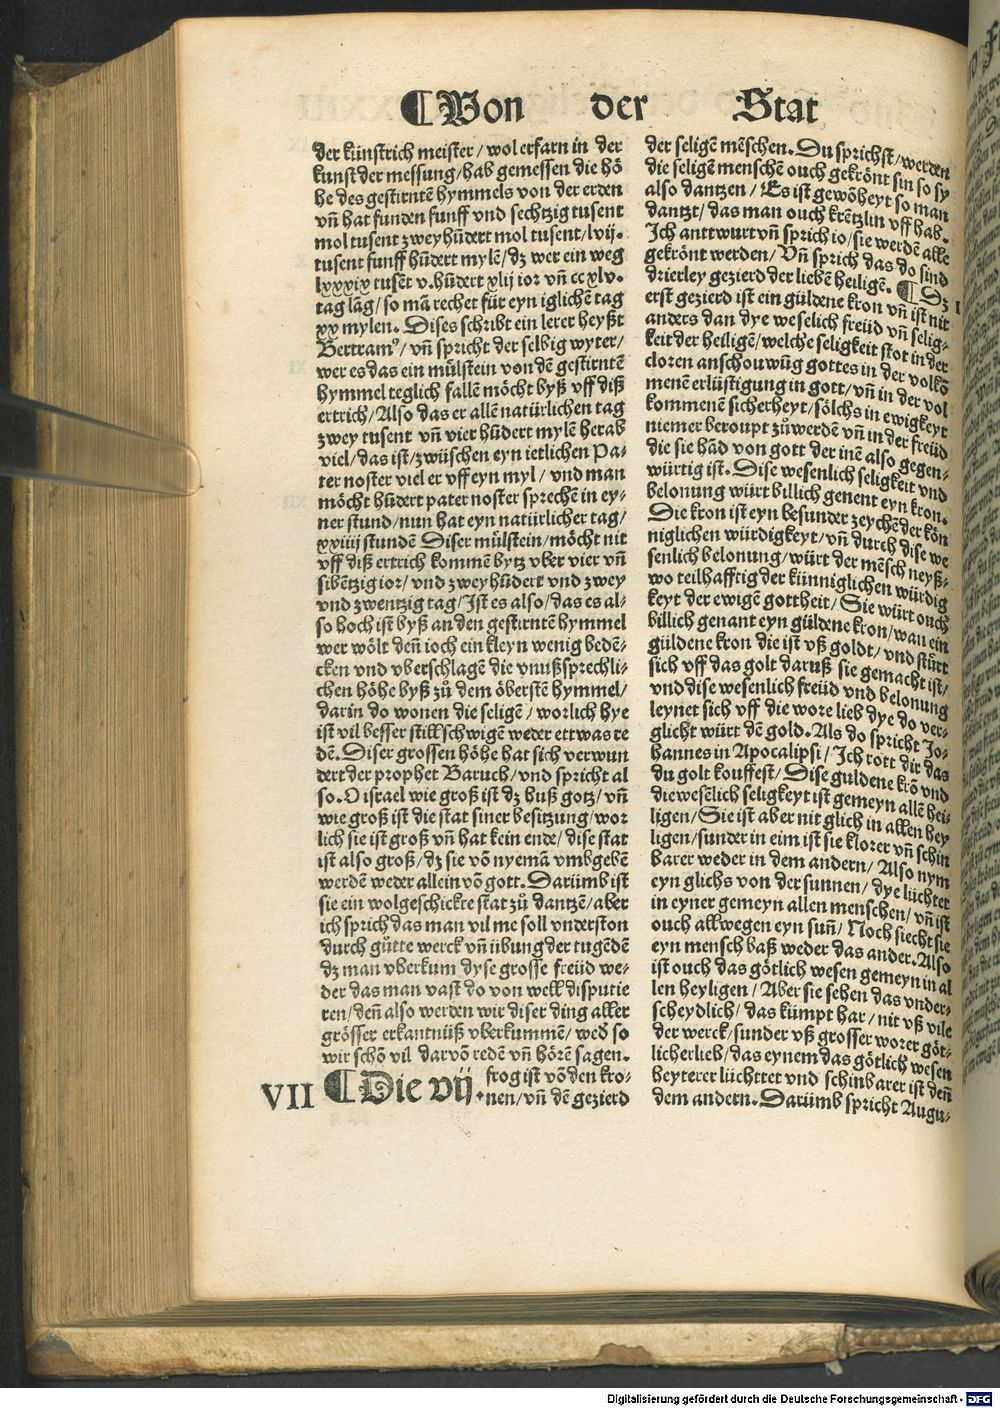 ¶Von der Stat
der künstrich meister / wol erfarn in der
kunst der messung / hab gemessen die hö
he des gestirntē hymmels von der erden
vñ hat funden funff vnd sechtzig tusent
mol tusent zwey hūdert mol tusent / lvij.
tusent funff hūdert mylē / dz wer ein weg
lxxxix tusēt v. hūdert xlij ior vñ cc xlv.
tag lāg / so mā rechet für eyn iglichē tag
xx mylen. Dises schribt ein lerer heyßt
Bertramꝰ / vñ spricht der selbig wyter /
wer es das ein mülstein von dē gestirntē
hymmel teglich fallē möcht byß vff diß
ertrich / Also das er allē natürlichen tag
zwey tusent vñ vier hūdert mylē herab
viel / das ist / zwüschen eyn ietlichen Pa-
ter noster viel er vff eyn myl / vnd man
möcht hūdert pater noster sprechē in ey-
ner stund / nun hat eyn natürlicher tag /
xxiiij stundē Diser mülstein / möcht nit
vff diß ertrich kommē bytz vber vier vñ
sibētzig ior / vnd zwey hūdert vnd zwey
vnd zwentzig tag / Ist es also / das es al-
so hoch ist byß an den gestirntē hymmel
wer wölt deñ ioch ein kleyn wenig bedē-
cken vnd vberschlagē die vnußsprechli-
chen höhe byß zů dem öberstē hymmel /
darin do wonen die seligē / worlich hye
ist vil besser still schwigē weder ettwas re
dē. Diser grossen höhe hat sich verwun
dert der prophet Baruch / vnd spricht al
so. O israel wie groß ist dz huß gotz / vñ
wie groß ist die stat siner besitzung / wor
lich sie ist groß vñ hat kein ende / dise stat
ist also groß / dz sie vō nyemā vmbgebē
werdē weder allein vō gott. Darümb ist
sie ein wolgeschickte stat zů dantzē / aber
ich sprich das man vil me soll vnderston
durch gůtte werck vñ übung der tugēdē
dz man vberkum dyse grosse freüd we-
der das man vast do von well disputie
ren / deñ also werden wir diser ding aller
grösser erkantnüß vberkummē / wed̄ so
wir schō vil darvō redē vñ hörē sagen.
VII ¶Die vij. frog ist vō den kro-
nen / vñ dē gezierd
der seligē mēschen. Du sprichst / werden
die seligē menschē ouch gekrönt sin so sy
also dantzen / Es ist gewōheyt so man
dantzt / das man ouch krētzlin vff hab.
Ich anttwurt vñ sprich io / sie werdē alle
gekrönt werden / Vñ sprich das do sind
drierley gezierd der liebē heiligē. ¶Dz
I
erst gezierd ist ein güldene kron vñ ist nit
anders dan dye weselich freüd vñ selig-
keit der heiligē / welche seligkeit stot in der
cloren anschouwūg gottes in der volkō
menē erlüstigung in gott / vñ in der vol
kommenē sicherheyt / sölchs in ewigkeyt
niemer beroupt zůwerdē vñ in der freüd
die sie hād von gott der inē also gegen-
würtig ist. Dise wesenlich seligkeit vnd
belonung würt billich genent eyn kron.
Die kron ist eyn besunder zeychē der kön
niglichen würdigkeyt / vñ durch dise we
senlich belonung / würt der mēsch neyß-
wo teilhafftig der künniglichen würdig
keyt der ewigē gottheit / Sie würt ouch
billich genant eyn güldene kron / wan ein
güldene kron die ist vß goldt / vnd stürt
sich vff das golt daruß sie gemacht ist /
vnd dise wesenlich freüd vnd belonung
leynet sich vff die wore lieb dye do ver-
glicht würt dē gold. Als do spricht Jo-
hannes in Apocalipsi / Ich rott dir das
du golt kouffest / Dise guldene krō vnd
die wesēlich seligkeyt ist gemeyn allē hei-
ligen / Sie ist aber nit glich in allen hey
ligen / sunder in eim ist sie klorer vñ schin
barer weder in dem andern / Also nym
eyn glichs von der sunnen / dye lüchtet
in eyner gemeyn allen menschen / vñ ist
ouch allwegen eyn suñ / Noch siecht sie
eyn mensch baß weder das ander. Also
ist ouch das götlich wesen gemeyn in al
len heyligen / Aber sie sehen das vnder-
scheydlich / das kümpt har / nit vß vile
der werck / sunder vß grosser worer göt-
licher lieb / das eynem das götlich wesen
heyterer lüchttet vnd schinbarer ist deñ
dem andern. Darümb spricht Augu-
Digitalisierung gefördert durch die Deutsche Forschungsgemeinschaft - DFG